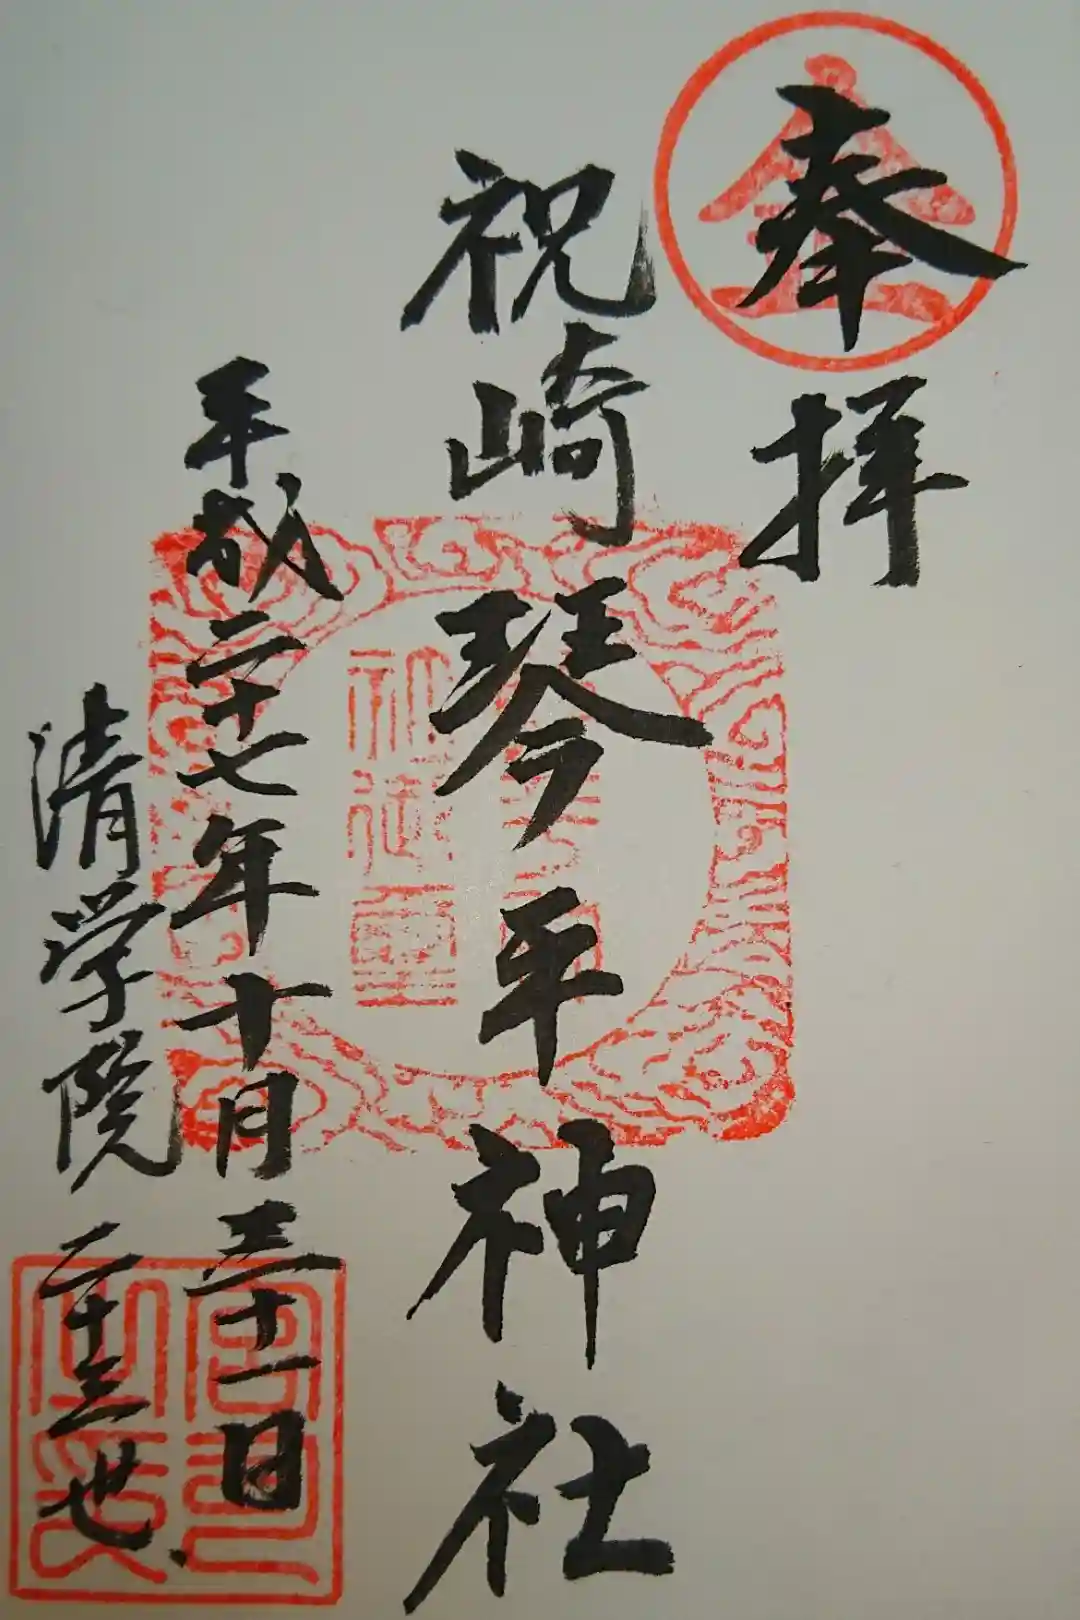 奉拝
祝崎琴平神社
平成二十七年十月三十一日
清学院二十三世
金
宮司之印